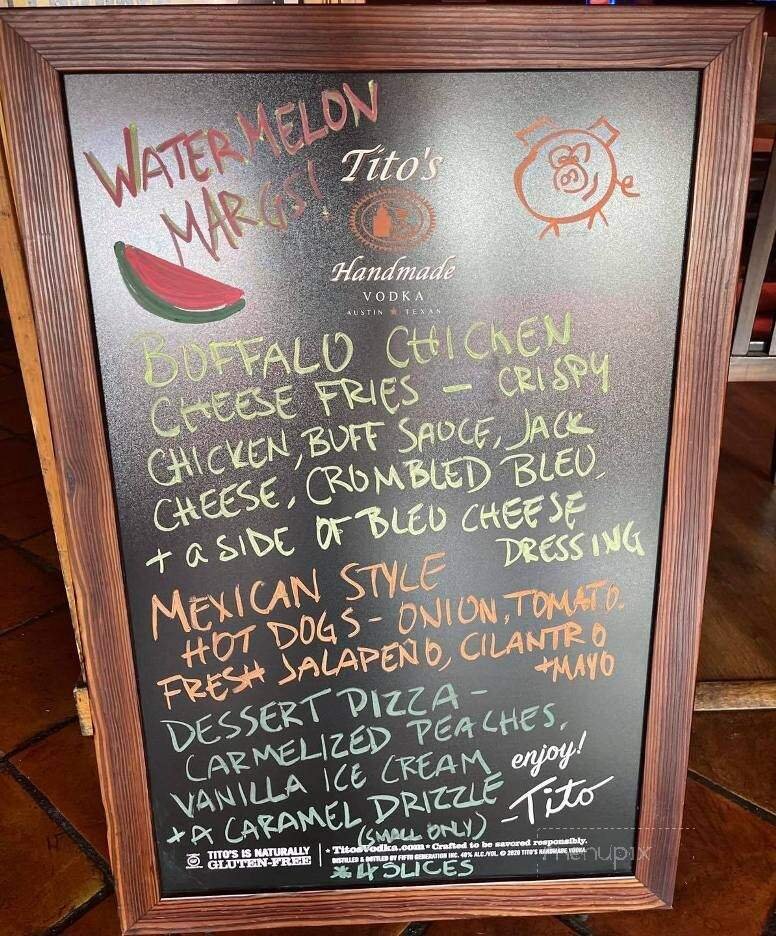 WATERMELON
MARGS!
Tito's
Handmade
VODKA
AUSTIN ★ TEXAS
BUFFALO CHICKEN
CHEESE FRIES - CRISPY
CHICKEN, BUFF SAUCE, JACK
CHEESE, CRUMBLED BLEU,
+ a SIDE OF BLEU CHEESE
DRESSING
MEXICAN STYLE
HOT DOGS - ONION, TOMATO,
FRESH JALAPEÑO, CILANTRO
+MAYO
DESSERT PIZZA -
CARMELIZED PEACHES,
VANILLA ICE CREAM
+ A CARAMEL DRIZZLE
(SMALL ONLY)
enjoy!
-Tito
TITO'S IS NATURALLY
GLUTEN-FREE
* TitosVodka.com * Crafted to be savored responsibly.
DISTILLED & BOTTLED BY FIFTH GENERATION INC. 40% ALC./VOL. © 2020 TITO'S HANDMADE VODKA.
* 4 SLICES
menupix